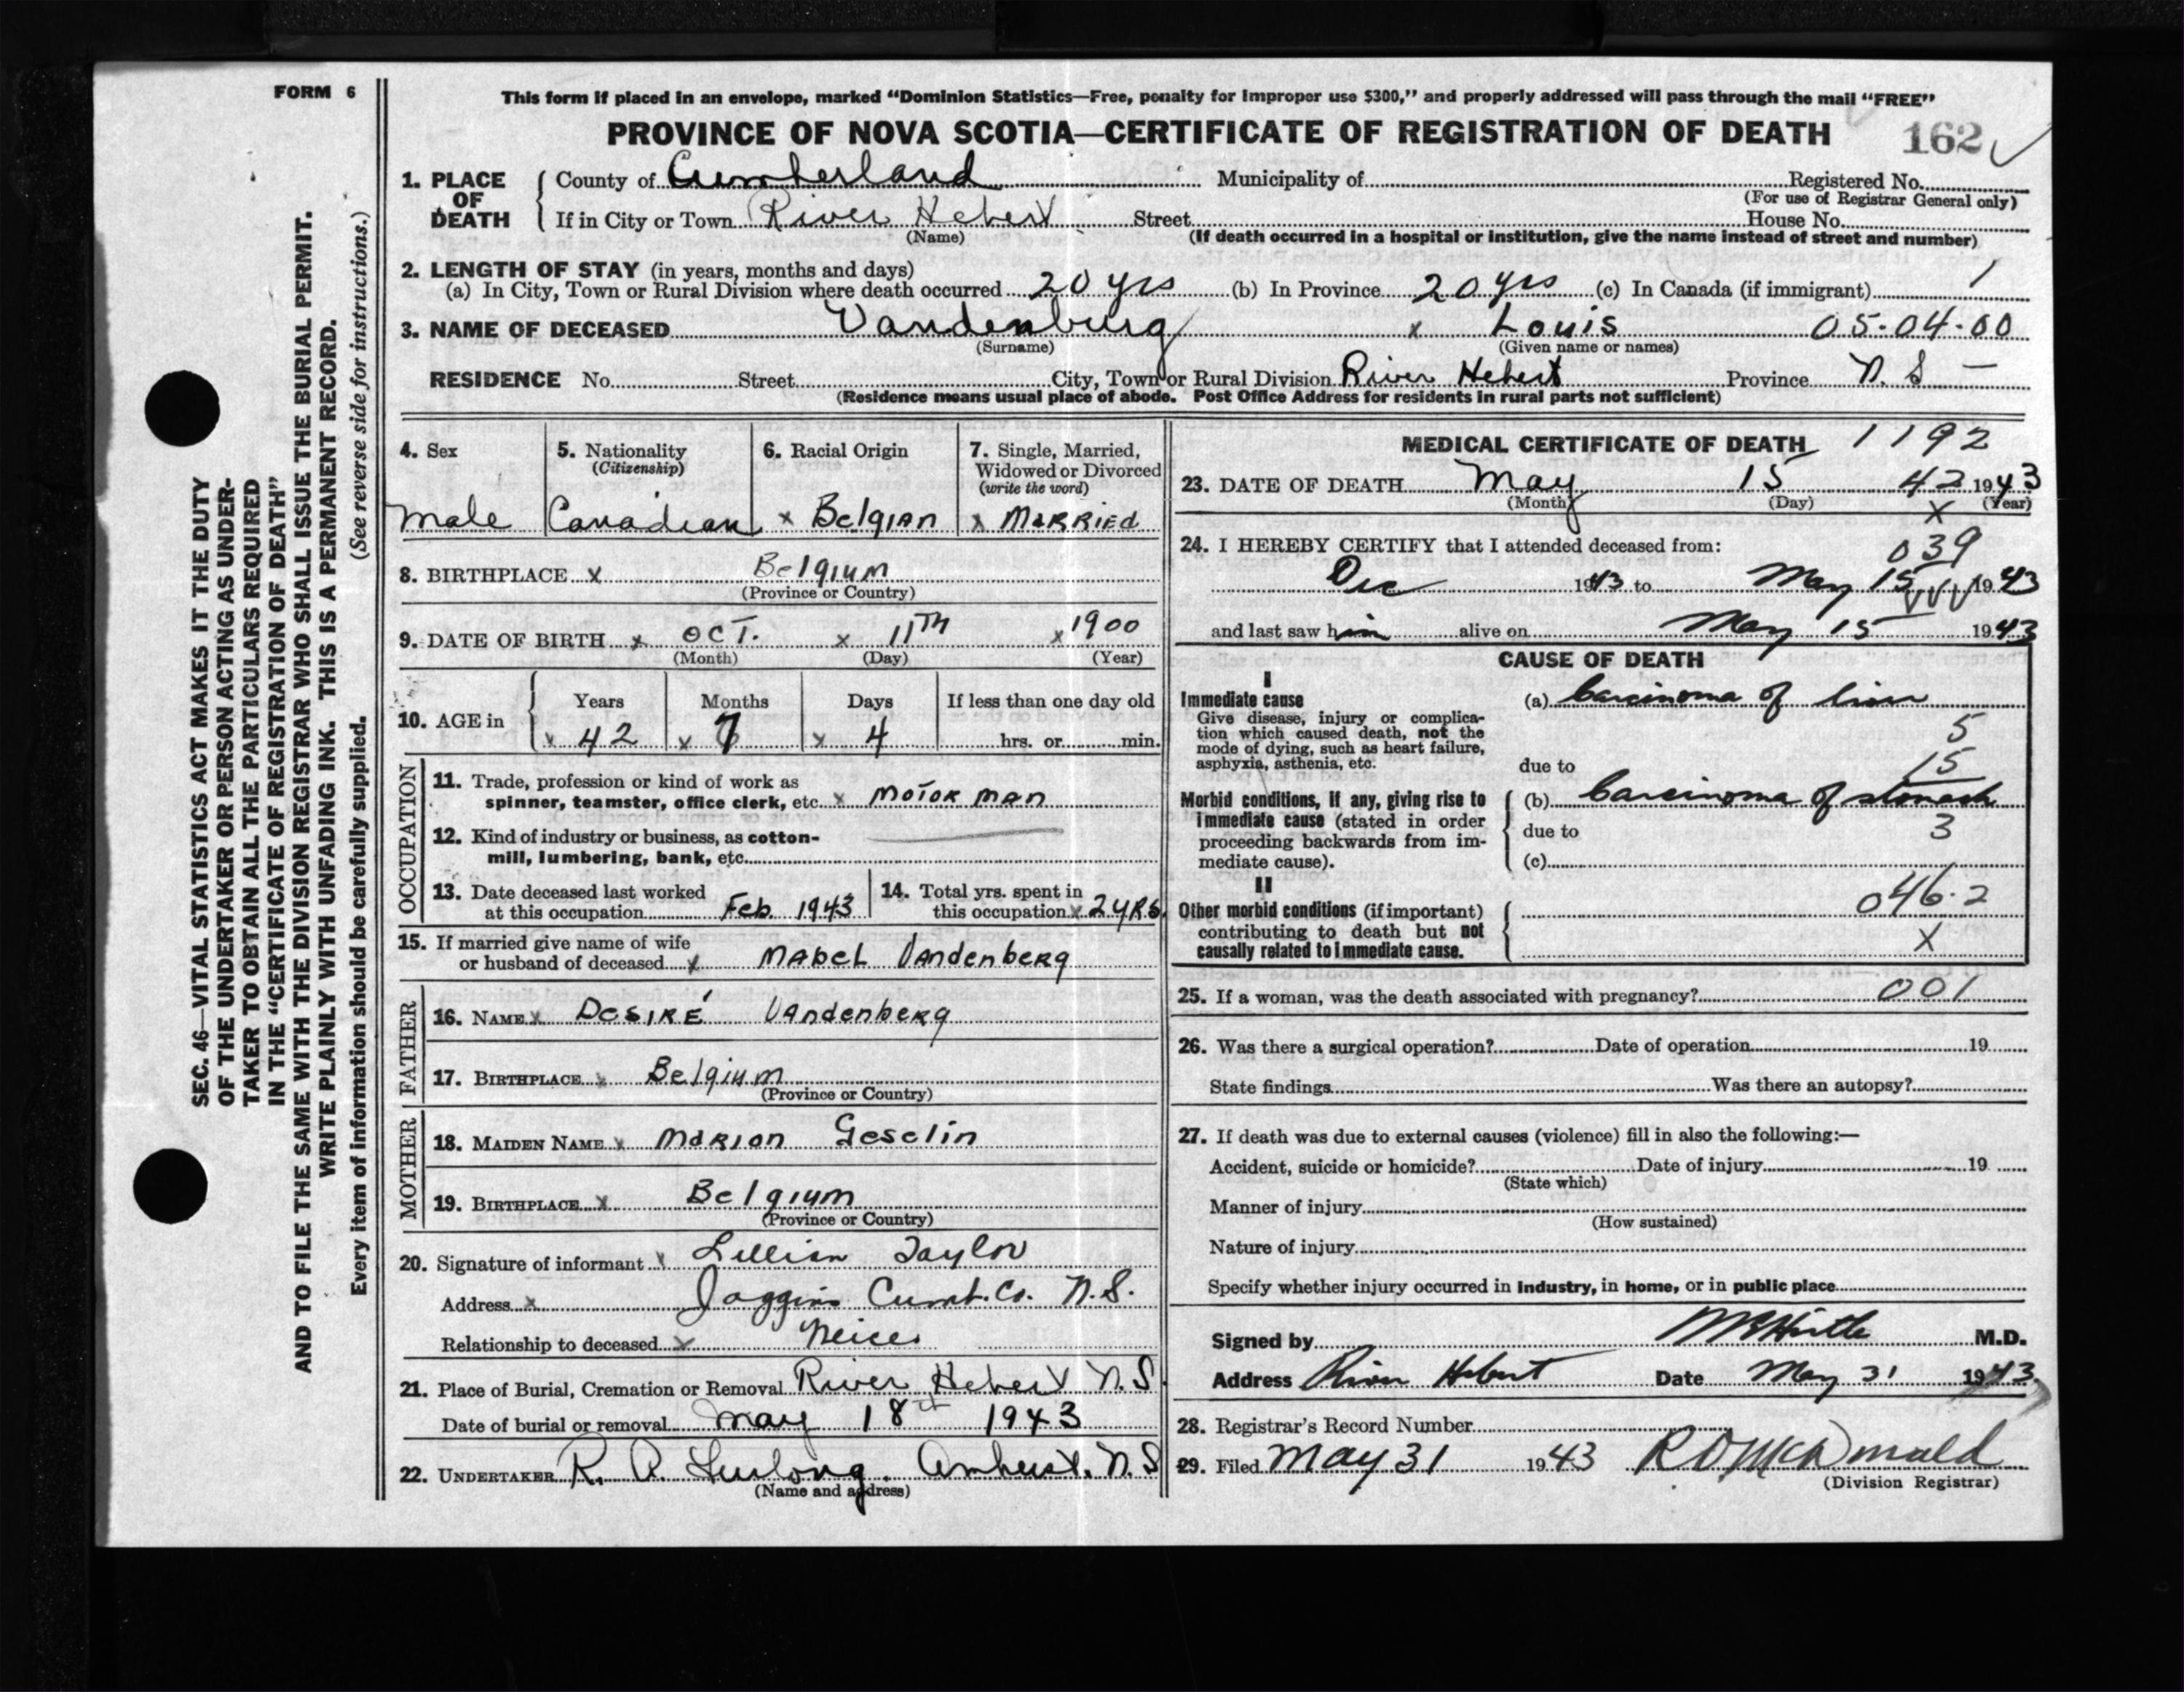 FORM 6
This form if placed in an envelope, marked “Dominion Statistics—Free, penalty for improper use $300,” and properly addressed will pass through the mail “FREE”
PROVINCE OF NOVA SCOTIA—CERTIFICATE OF REGISTRATION OF DEATH 162
1. PLACE OF DEATH
County of Cumberland Municipality of Registered No.
(For use of Registrar General only)
If in City or Town River Hebert Street House No.
(Name) (If death occurred in a hospital or institution, give the name instead of street and number)
2. LENGTH OF STAY (in years, months and days)
(a) In City, Town or Rural Division where death occurred 20 yrs (b) In Province 20 yrs (c) In Canada (if immigrant) 1
3. NAME OF DECEASED Vandenburg x Louis 05-04-00
(Surname) (Given name or names)
RESIDENCE No. Street City, Town or Rural Division River Hebert Province N. S —
(Residence means usual place of abode. Post Office Address for residents in rural parts not sufficient)
4. Sex
Male
5. Nationality
(Citizenship)
Canadian
6. Racial Origin
x Belgian
7. Single, Married,
Widowed or Divorced
(write the word)
x Married
8. BIRTHPLACE x Belgium
(Province or Country)
9. DATE OF BIRTH x OCT. x 11TH x 1900
(Month) (Day) (Year)
10. AGE in
Years Months Days If less than one day old
x 42 x 7 x 4 hrs. or min.
OCCUPATION
11. Trade, profession or kind of work as
spinner, teamster, office clerk, etc. x Motor man
12. Kind of industry or business, as cotton-
mill, lumbering, bank, etc.
13. Date deceased last worked
at this occupation Feb. 1943
14. Total yrs. spent in
this occupation x 2 YRS.
15. If married give name of wife
or husband of deceased x Mabel Vandenberg
FATHER
16. NAME x Desiré Vandenberg
17. BIRTHPLACE x Belgium
(Province or Country)
MOTHER
18. MAIDEN NAME x Marion Geselin
19. BIRTHPLACE x Belgium
(Province or Country)
20. Signature of informant x Lillian Taylor
Address x Joggins Cumb. Co. N.S.
Relationship to deceased x Neice
21. Place of Burial, Cremation or Removal River Hebert N.S.
Date of burial or removal May 18th 1943
22. UNDERTAKER R. A. Furlong. Amherst. N.S
(Name and address)
MEDICAL CERTIFICATE OF DEATH 1192
23. DATE OF DEATH May 15 42 1943
(Month) (Day) x (Year)
24. I HEREBY CERTIFY that I attended deceased from: 039
Dec 1943 to May 15 1943
and last saw him alive on May 15 1943
CAUSE OF DEATH
I
Immediate cause
Give disease, injury or complica-
tion which caused death, not the
mode of dying, such as heart failure,
asphyxia, asthenia, etc.
(a) Carcinoma of liver
5
due to 15
Morbid conditions, if any, giving rise to
immediate cause (stated in order
proceeding backwards from im-
mediate cause).
(b) Carcinoma of stomach
due to 3
(c)
II
Other morbid conditions (if important)
contributing to death but not
causally related to immediate cause.
046.2
X
25. If a woman, was the death associated with pregnancy? 001
26. Was there a surgical operation? Date of operation 19
State findings Was there an autopsy?
27. If death was due to external causes (violence) fill in also the following:—
Accident, suicide or homicide? Date of injury 19
(State which)
Manner of injury
(How sustained)
Nature of injury
Specify whether injury occurred in industry, in home, or in public place
Signed by M.D.
Address River Hebert Date May 31 1943
28. Registrar's Record Number
29. Filed May 31 1943 R D McDonald
(Division Registrar)
SEC. 46—VITAL STATISTICS ACT MAKES IT THE DUTY
OF THE UNDERTAKER OR PERSON ACTING AS UNDER-
TAKER TO OBTAIN ALL THE PARTICULARS REQUIRED
IN THE “CERTIFICATE OF REGISTRATION OF DEATH”
AND TO FILE THE SAME WITH THE DIVISION REGISTRAR WHO SHALL ISSUE THE BURIAL PERMIT.
WRITE PLAINLY WITH UNFADING INK. THIS IS A PERMANENT RECORD.
Every item of information should be carefully supplied. (See reverse side for instructions.)